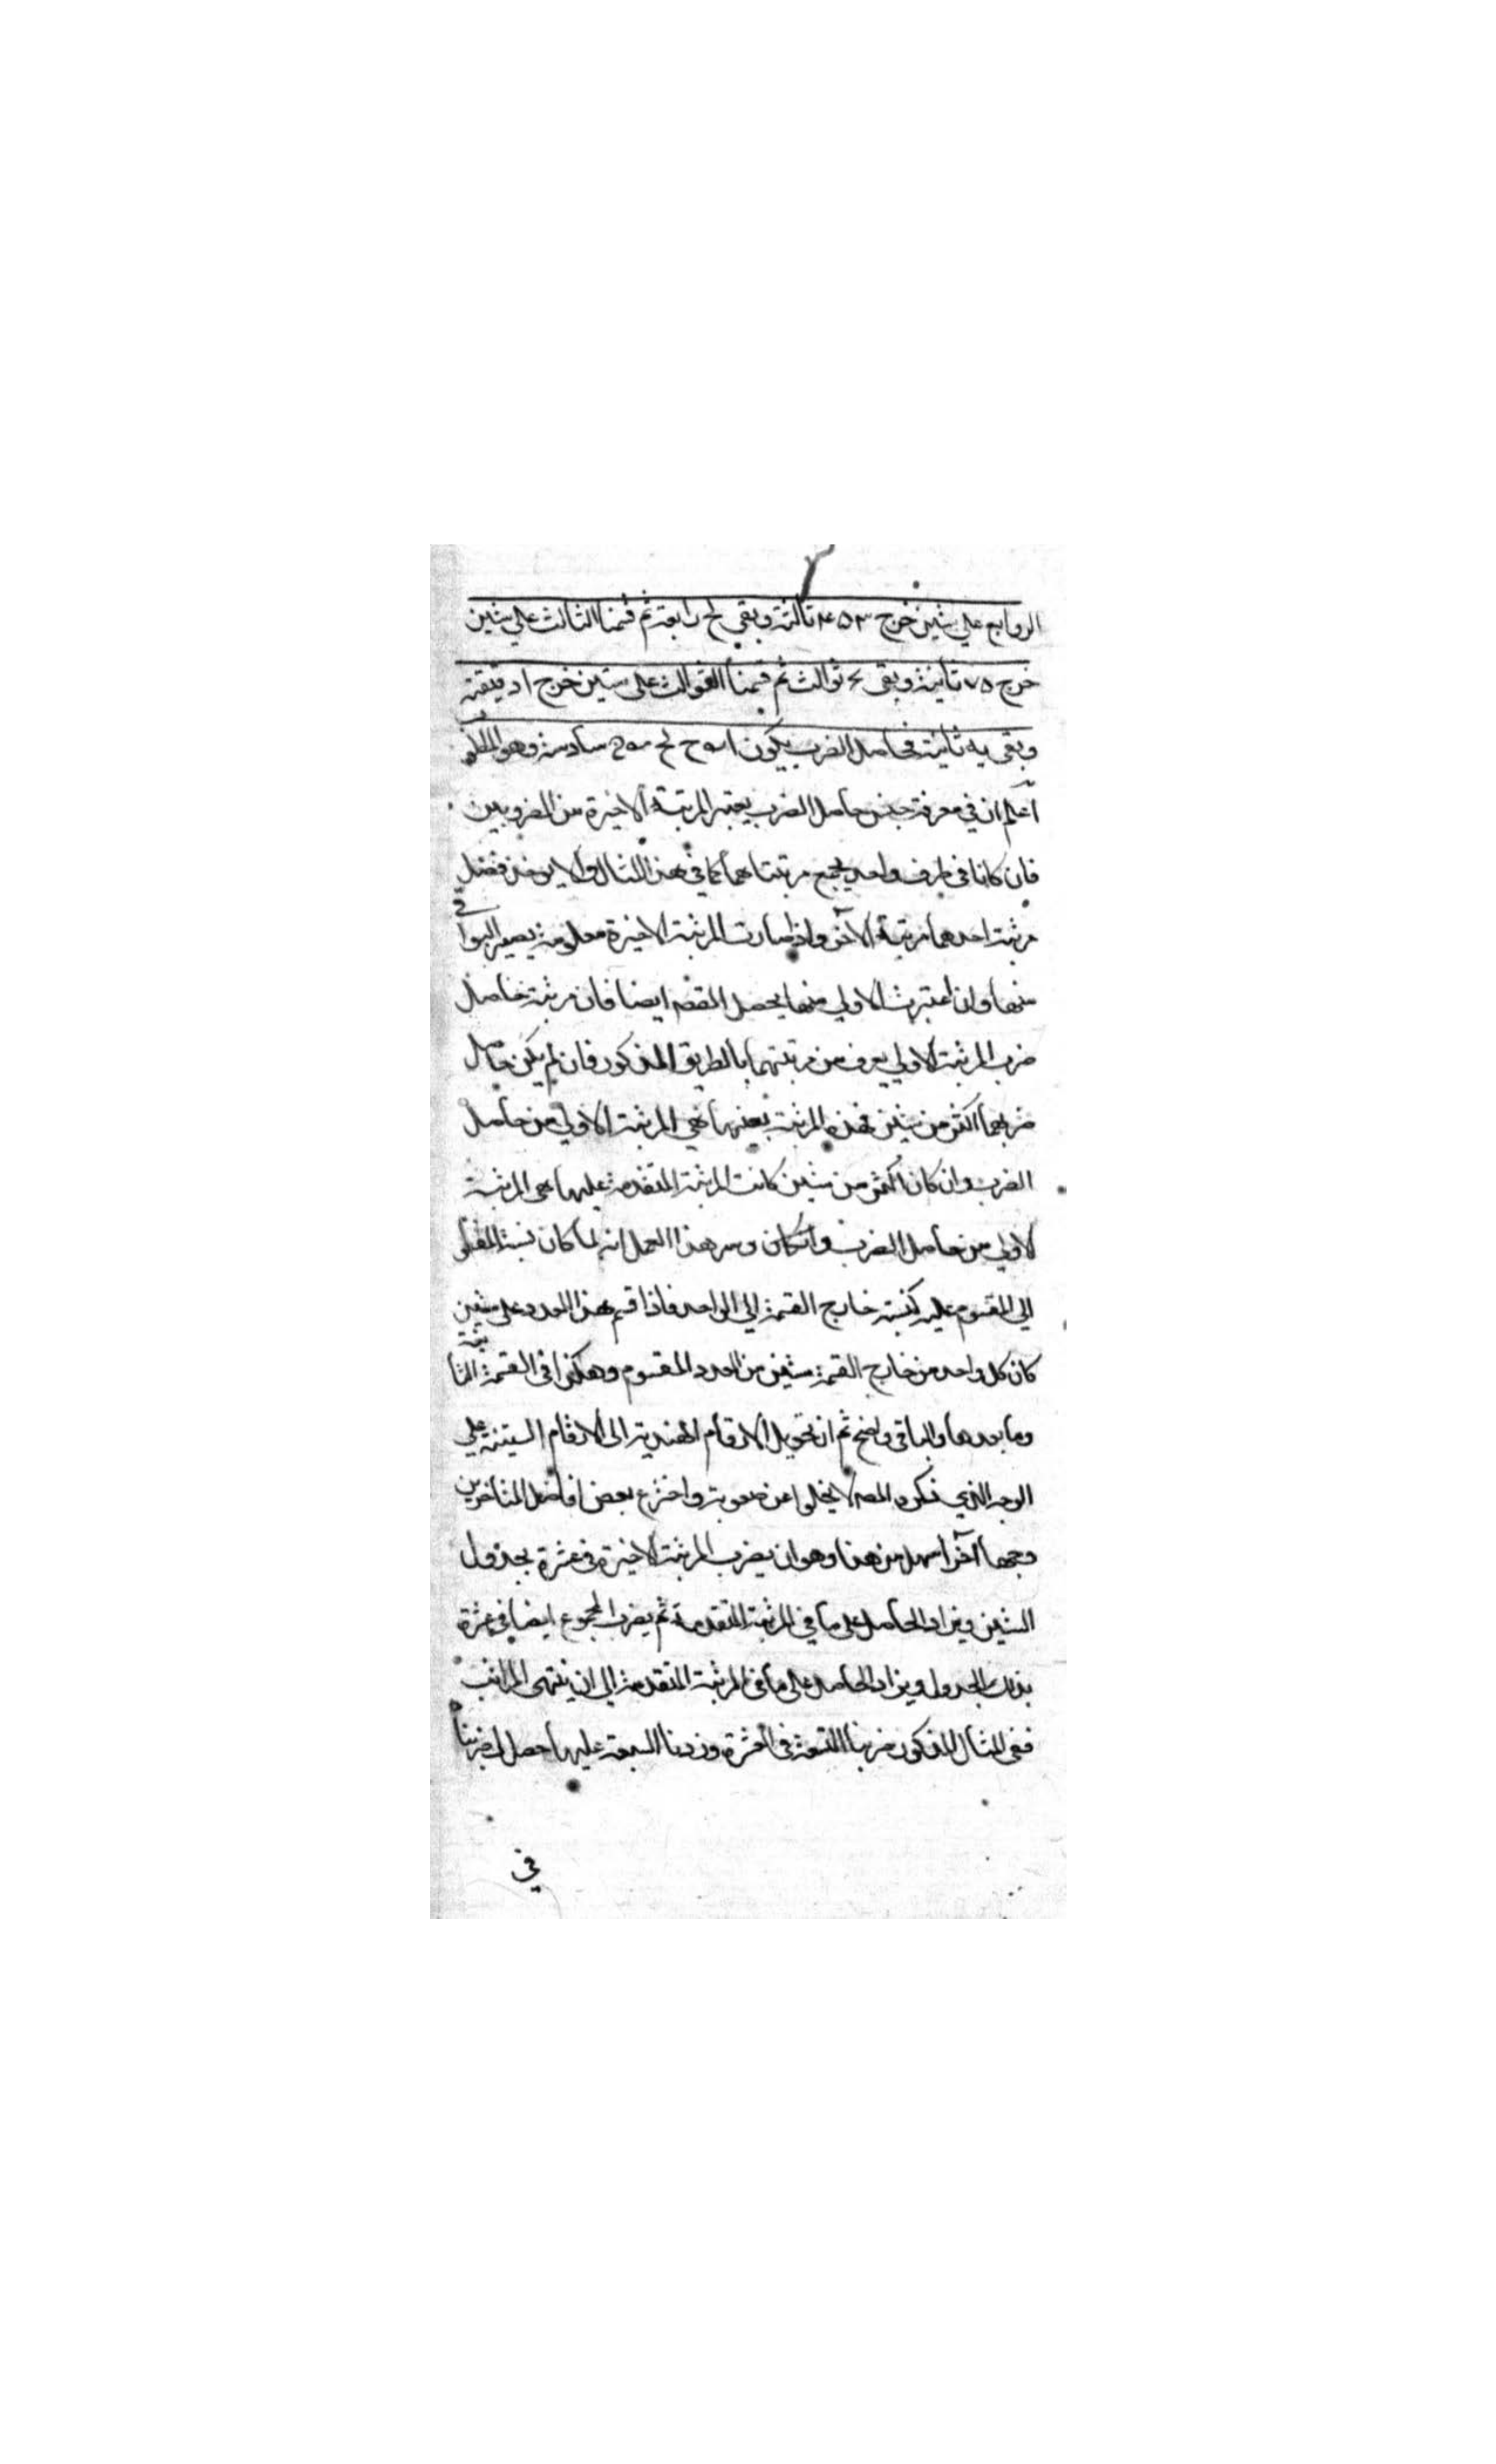 الروابع على ستين خرج ٤٥٣ ثالثة وبقي لح رابعة ثم قسمنا الثالث على ستين
خرج ٧٥ ثانية وبقي ثوالث ثم قسمنا الثوالث على ستين خرج ا دقيقة
وبقي يه ثانية فحاصل الضرب يكون سادسة وهو المطلوب
اعلم ان في معرفة جنس حاصل الضرب يعتبر المرتبة الاخيرة من المضروبين
فان كانا في طرف واحد يجمع مرتبتاهما كما في هذا المثال والا يوخذ فضل
مرتبة احدهما مرتبة الآخر واذا صارت المرتبة الاخيرة معلومة يصير البواقي
منها وان اعتبرت الاولي منها يحصل المقصد ايضا فان مرتبة حاصل
ضرب المرتبة الاولي يعرف من مرتبتهما بالطريق المذكور فان لم يكن حاصل
ضربهما اكثر من ستين فهذه المرتبة بعينها هي المرتبة الاولي من حاصل
الضرب وان كان اكثر من ستين كانت المرتبة المتقدمة عليها هي المرتبة
الاولي من حاصل الضرب وسر هذا العمل انه لما كان نسبة المقسوم
الي المقسوم عليه كنسبة خارج القسمة الي الواحد فاذا قسم هذا العدد على ستين
كان كل واحد من خارج القسمة ستين من العدد المقسوم وهكذا في القسمة الثانية
وما بعدها والباقي واضح ثم ان تحويل الارقام الهندية الى الارقام الستينية على
الوجه الذي ذكره المصـ لا يخلوا عن صعوبة واخترع بعض افاضل المتاخرين
وجها آخر اسهل من هذا وهو ان يضرب المرتبة الاخيرة في عشرة بجدول
الستين ويزاد الحاصل على ما في المرتبة المتقدمة ثم يضرب المجموع ايضا في عشرة
بذلك الجدول ويزاد الحاصل على ما في المرتبة المتقدمة الي ان ينتهى المراتب
ففي المثال المذكور ضربنا التسعة في العشرة وزدنا السبعة عليها حصل ضربنا
في